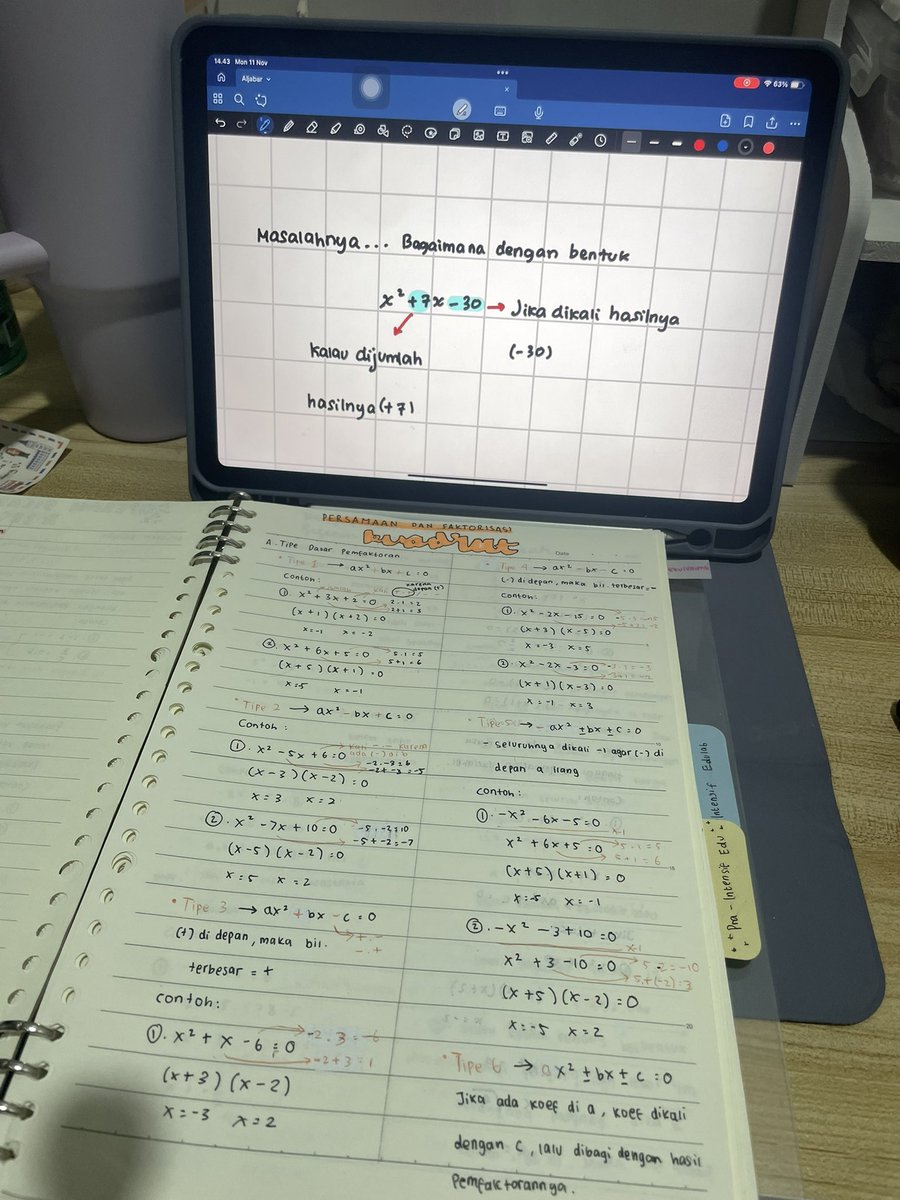 14.43 Mon 11 Nov
63%
Aljabar
Masalahnya... Bagaimana dengan bentuk
x² + 7x - 30 → Jika dikali hasilnya
(-30)
kalau dijumlah
hasilnya (+7)
PERSAMAAN DAN FAKTORISASI
kuadrat
Date
A. Tipe Dasar Pemfaktoran
• Tipe 1 → ax² + bx + c = 0
Contoh:
karena
depan (+)
①. x² + 3x + 2 = 0
2 . 1 = 2
2 + 1 = 3
(x+1) (x+2) = 0
x = -1 x = -2
②. x² + 6x + 5 = 0
5 . 1 = 5
5 + 1 = 6
(x+5) (x+1) = 0
x = 5 x = -1
• Tipe 2 → ax² - bx + c = 0
Contoh:
①. x² - 5x + 6 = 0
kali - . - karena
ada (-) di b
-2 . -3 = 6
-2 + -3 = -5
(x-3) (x-2) = 0
x = 3 x = 2
②. x² - 7x + 10 = 0
-5 . -2 = 10
-5 + -2 = -7
(x-5) (x-2) = 0
x = 5 x = 2
• Tipe 3 → ax² + bx - c = 0
+ . -
- . +
(+) di depan, maka bil.
terbesar = +
contoh:
①. x² + x - 6 = 0
-2 . 3 = -6
-2 + 3 = 1
(x+3) (x-2)
x = -3 x = 2
• Tipe 4 → ax² - bx - c = 0
(-) di depan, maka bil. terbesar = -
Contoh:
①. x² - 2x - 15 = 0
(x+3) (x-5) = 0
x = -3 x = 5
②. x² - 2x - 3 = 0
(x+1) (x-3) = 0
x = -1 x = 3
• Tipe 5 → - ax² ± bx ± c = 0
- seluruhnya dikali -1 agar (-) di
depan a ilang
contoh:
①. -x² - 6x - 5 = 0
x-1
x² + 6x + 5 = 0
5 . 1 = 5
5 + 1 = 6
(x+5) (x+1) = 0
x = -5 x = -1
②. -x² - 3 + 10 = 0
x-1
x² + 3 - 10 = 0
5 . -2 = -10
5 + (-2) = 3
(x+5) (x-2) = 0
x = -5 x = 2
• Tipe 6 → ax² ± bx ± c = 0
Jika ada koef di a, koef dikali
dengan c, lalu dibagi dengan hasil
pemfaktorannya.
10
15
20
Intensif Edulab
Pra - Intensif Edu